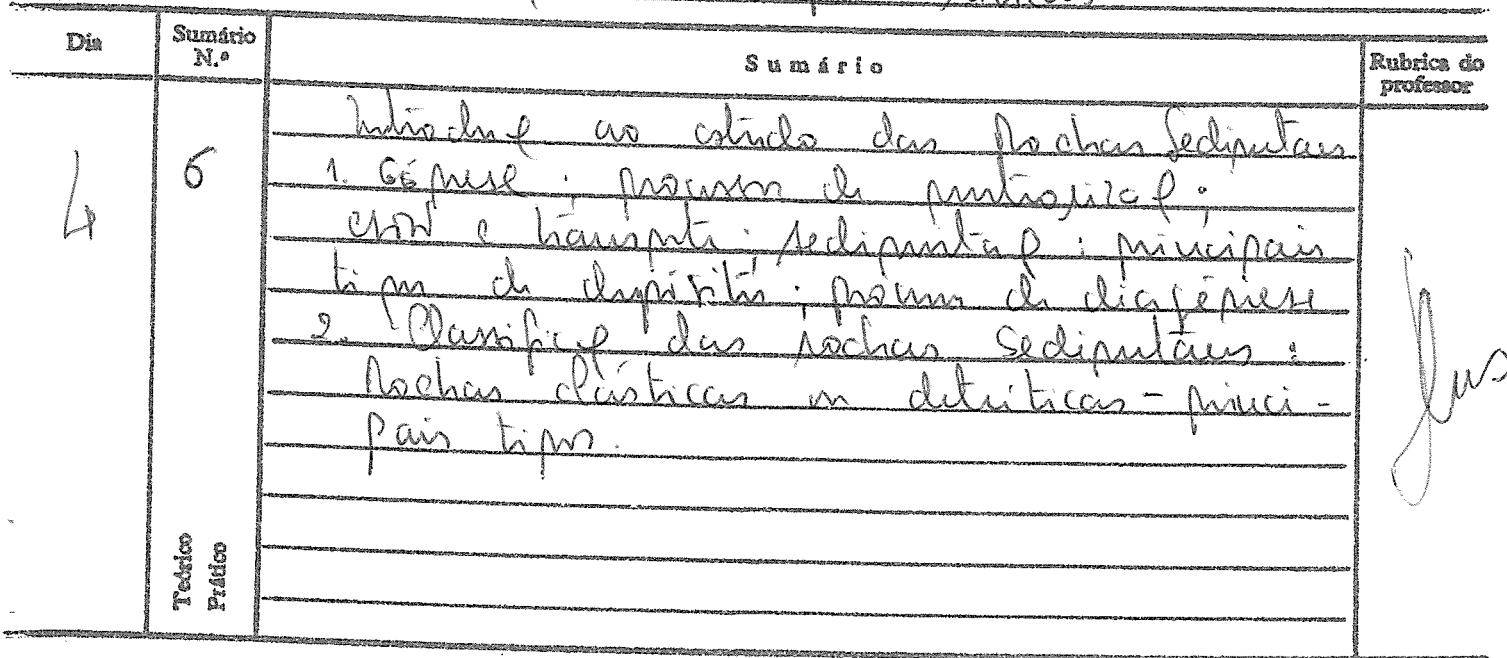 Dia
Sumário N.º
Sumário
Rubrica do professor
4
6
Introduç ao estudo das Rochas Sedimentares
1. Génese: processos de meteorização;
erosão e transporte; sedimentação: principais
tipos de depósitos; processos de diagénese
2. Classificaç das rochas sedimentares:
Rochas clásticas ou detríticas - princi-
pais tipos.
Teórico
Prático